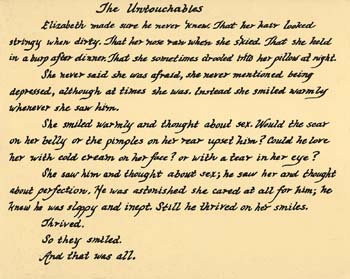 The Untouchables
Elizabeth made sure he never knew. That her hair looked
stringy when dirty. That her nose ran when she skied. That she held
in a burp after dinner. That she sometimes drooled into her pillow at night.
She never said she was afraid, she never mentioned being
depressed, although at times she was. Instead she smiled warmly
whenever she saw him.
She smiled warmly and thought about sex. Would the scar
on her belly or the pimples on her rear upset him? Could he love
her with cold cream on her face? or with a tear in her eye?
She saw him and thought about sex; he saw her and thought
about perfection. He was astonished she cared at all for him; he
knew he was sloppy and inept. Still he thrived on her smiles.
Thrived.
So they smiled.
And that was all.